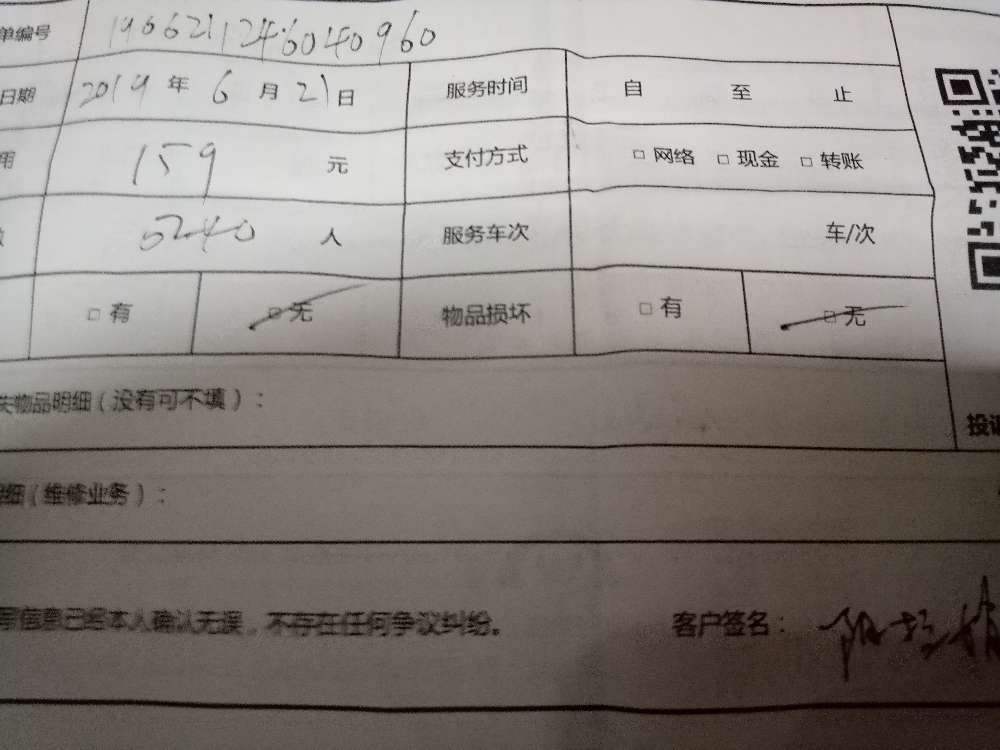 单编号 1906211246040960
日期 2019年 6月 21日 服务时间 自 至 止
用 159 元 支付方式 □ 网络 □ 现金 □ 转账
数 0240 人 服务车次 车/次
□ 有 □ 无 物品损坏 □ 有 □ 无
失物品明细（没有可不填）：
投诉
明细（维修业务）：
写信息已经本人确认无误，不存在任何争议纠纷。 客户签名：